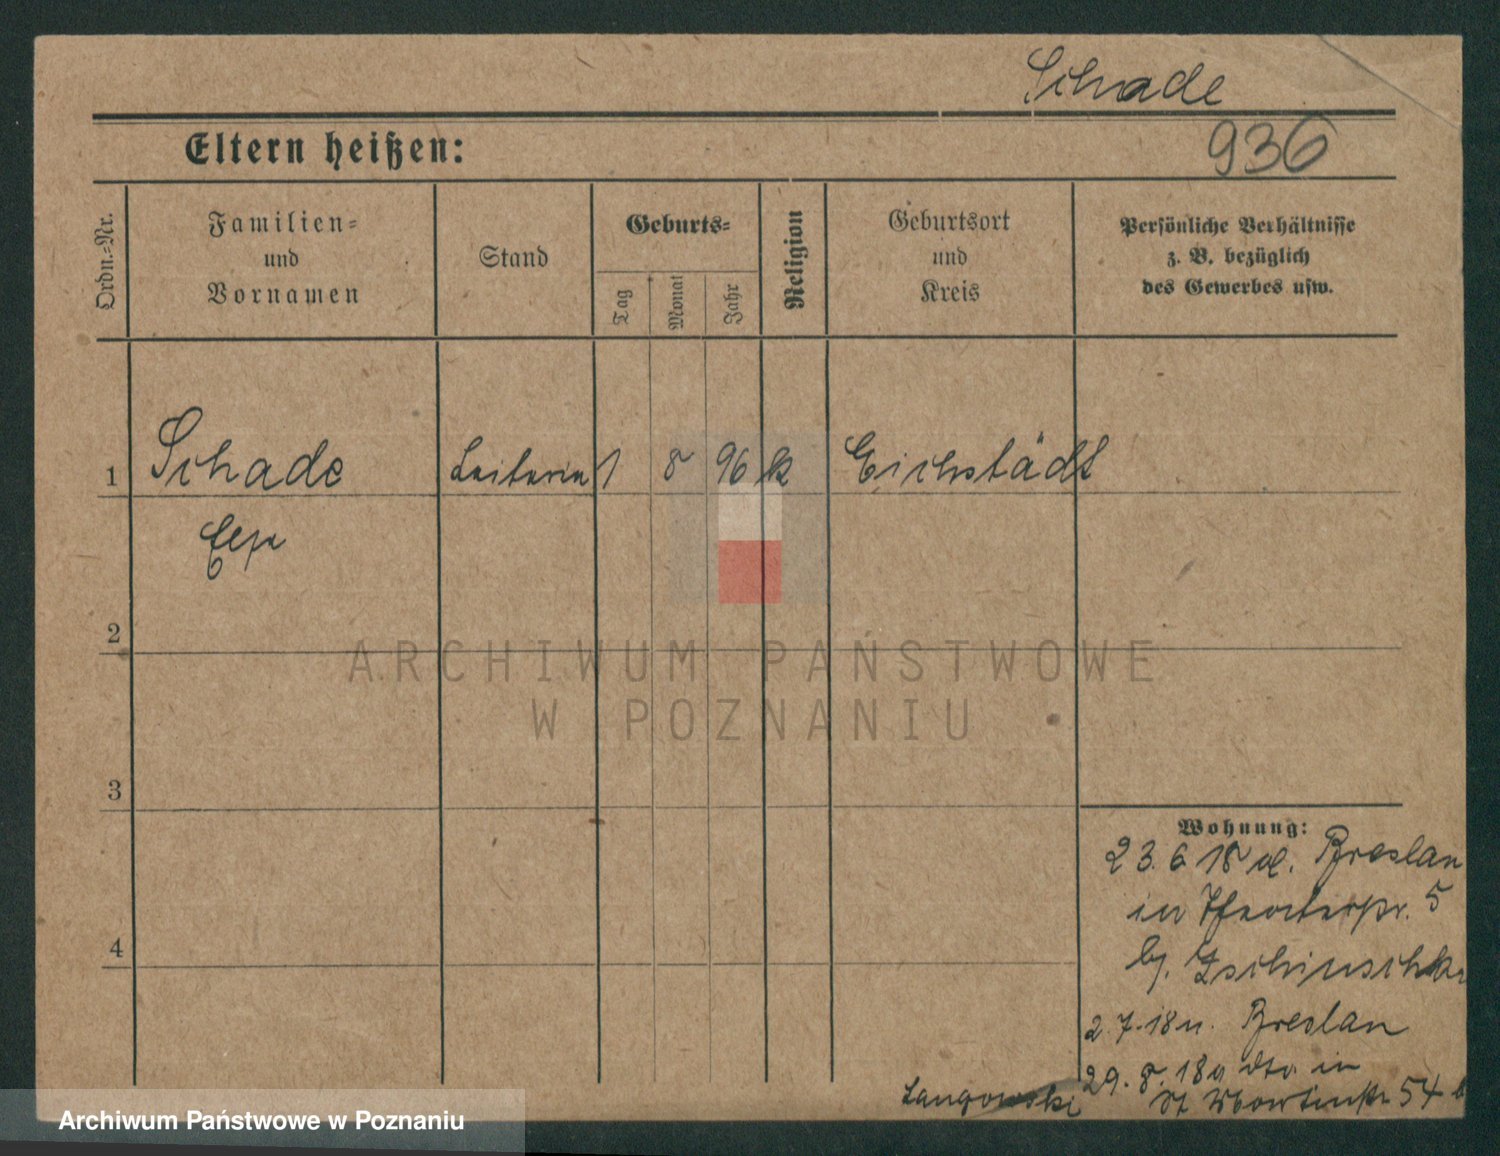 Schade
Eltern heißen:
936
Ordn.-Nr.
Familien-
und
Vornamen
Stand
Geburts-
Tag
Monat
Jahr
Religion
Geburtsort
und
Kreis
Persönliche Verhältnisse
z. B. bezüglich
des Gewerbes usw.
1 Schade Leiterin 1 8 96 k Eichstädt
2
ARCHIWUM PAŃSTWOWE
W POZNANIU
3
Wohnung:
23. 6 18 v. Breslau
in Theaterstr. 5
bj. Tschuschke
4
2. 7. 18 n. Breslau
29. 8. 18 v. dto in
Langowski
St Martinstr 54 b
Archiwum Państwowe w Poznaniu